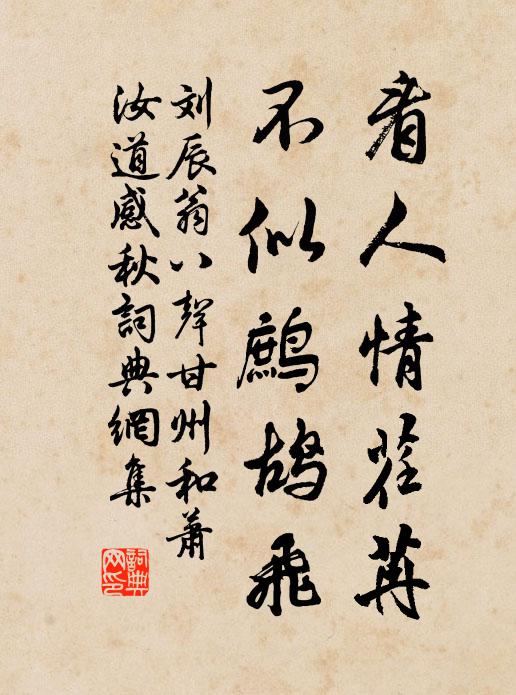 看人情荏苒
不似鷓鴣飛
刘辰翁八聲甘州和蕭
汝道感秋詞典網集
詞典网印